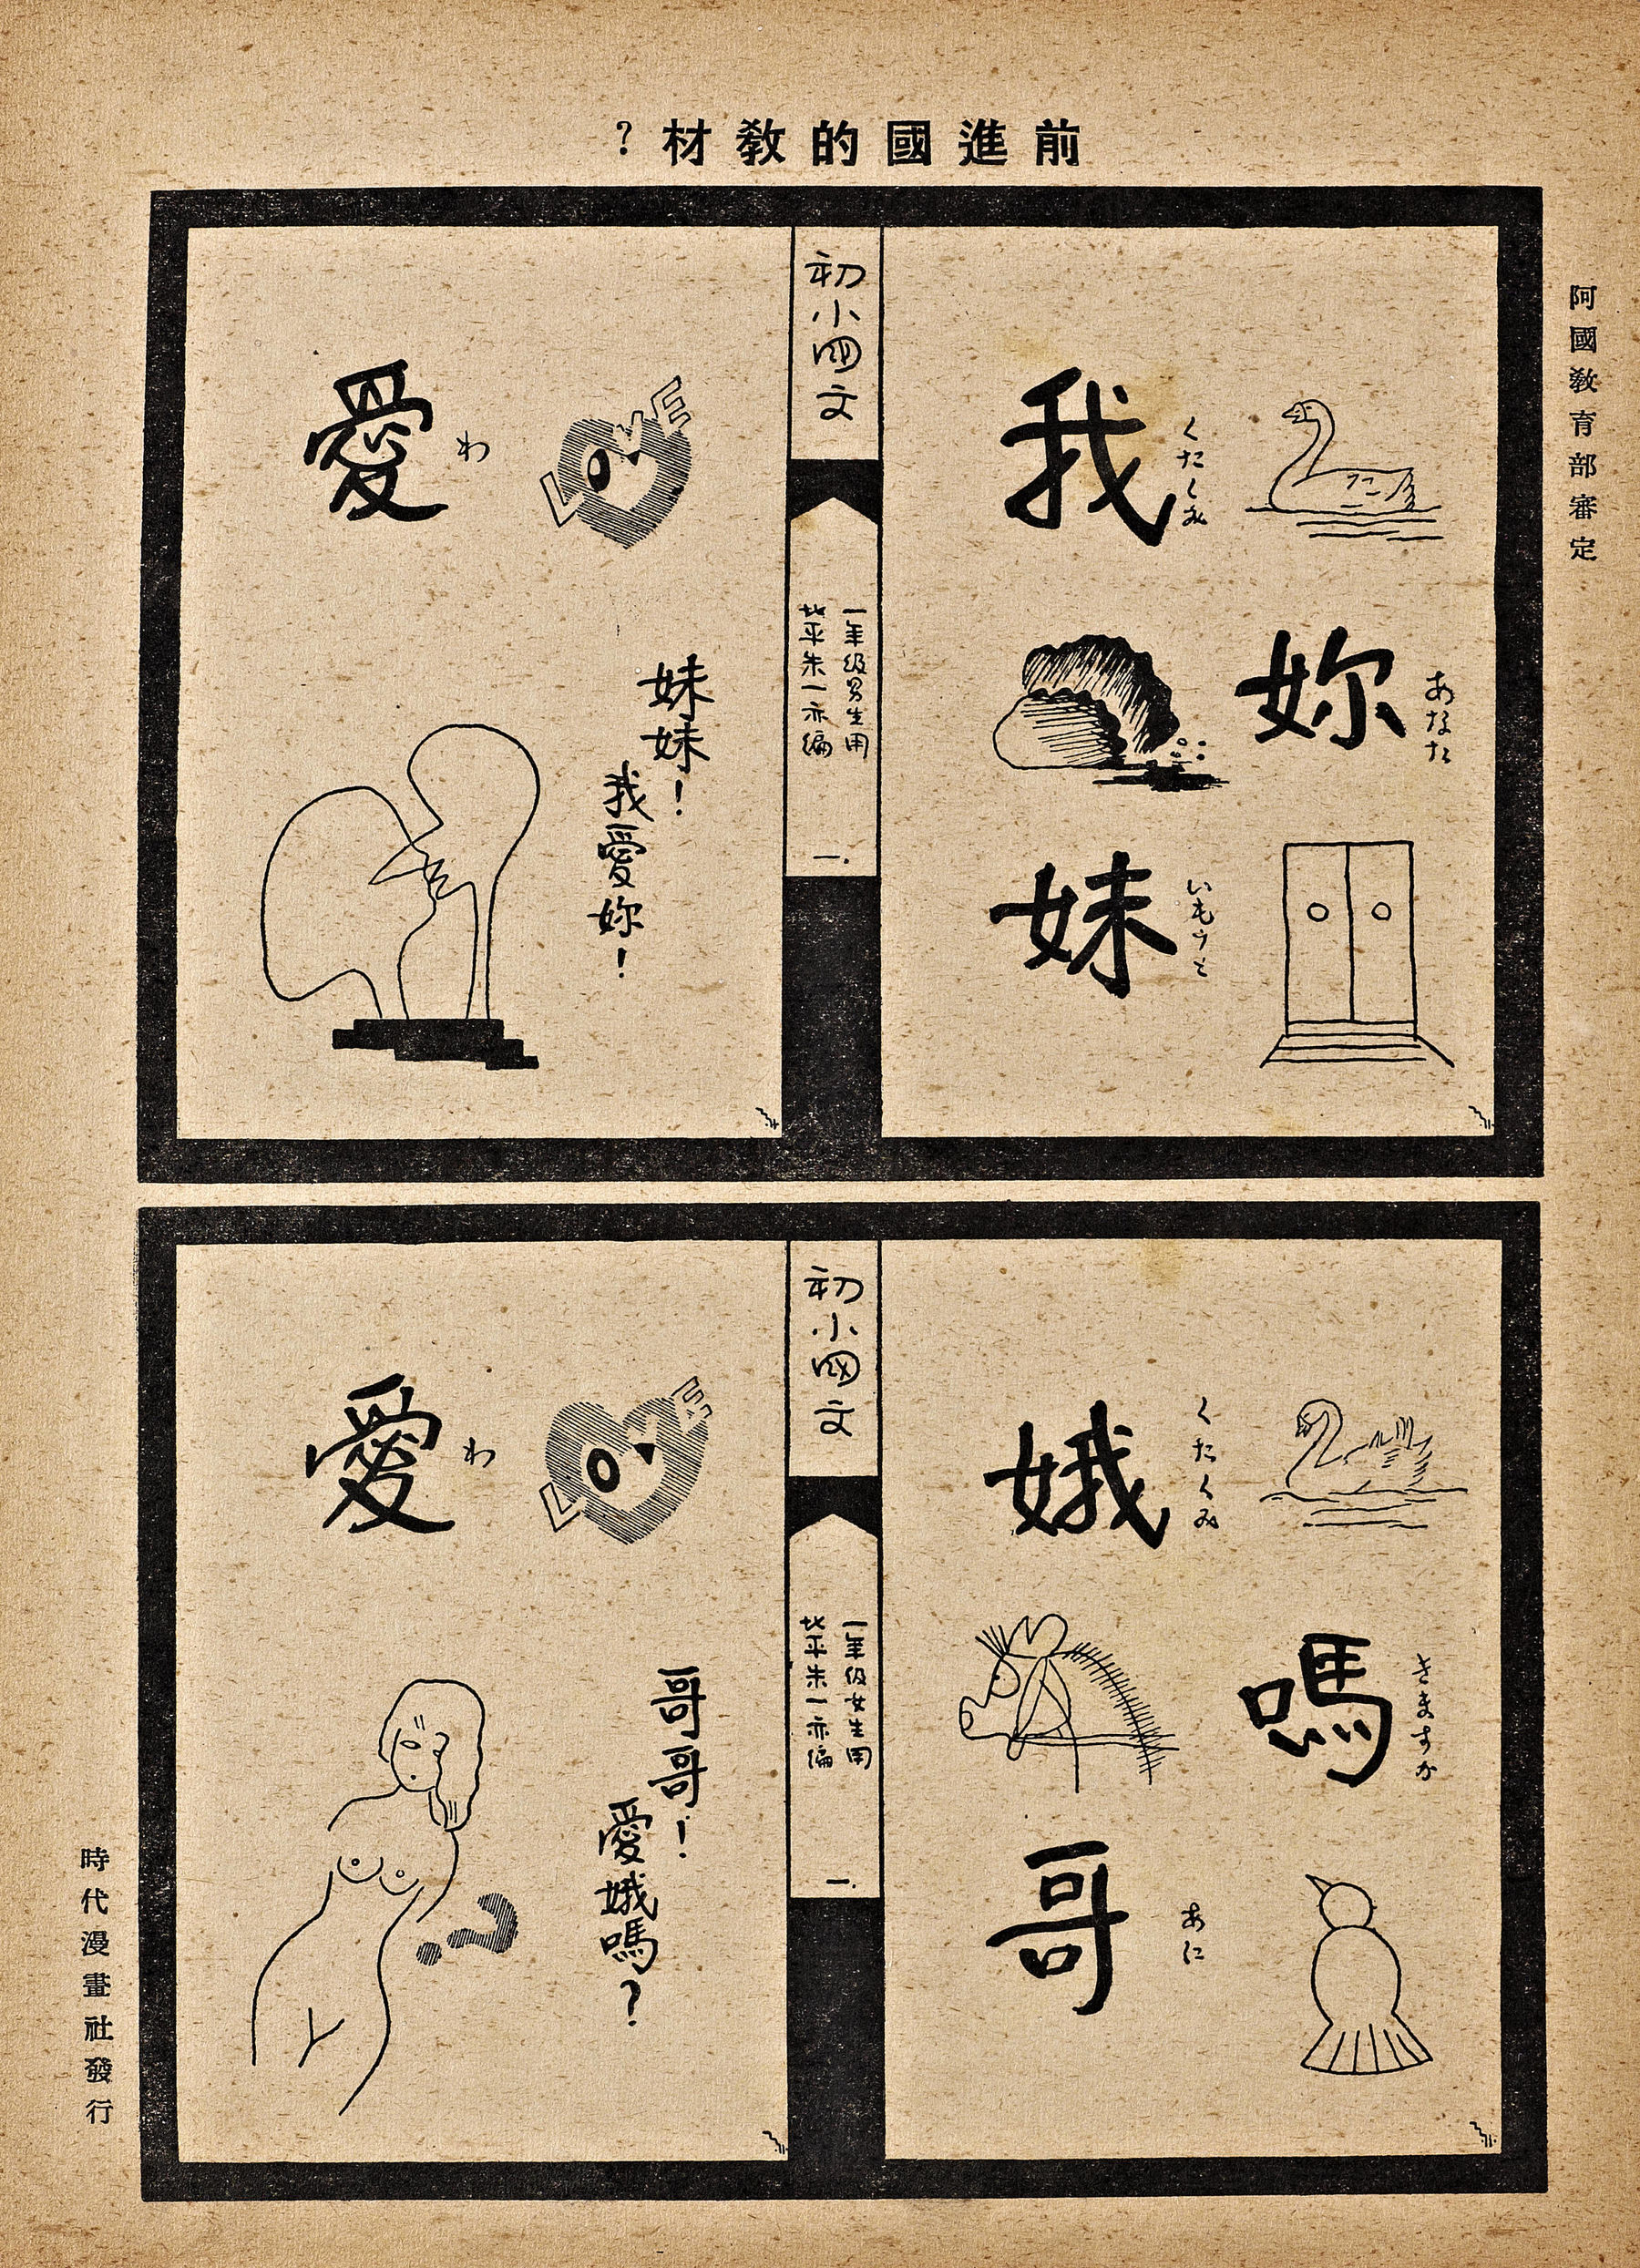 前進國的教材?
阿國教育部審定
我
くたくみ
妳
あなた
妹
いもうと
初小國文
一年級男生用
北平朱一亦編
一.
愛
わ
LOVE
妹妹!
我愛妳!
娥
くたくみ
嗎
きますか
哥
あに
初小國文
一年級女生用
北平朱一亦編
一.
愛
わ
LOVE
哥哥!
愛娥嗎?
?
時代漫畫社發行